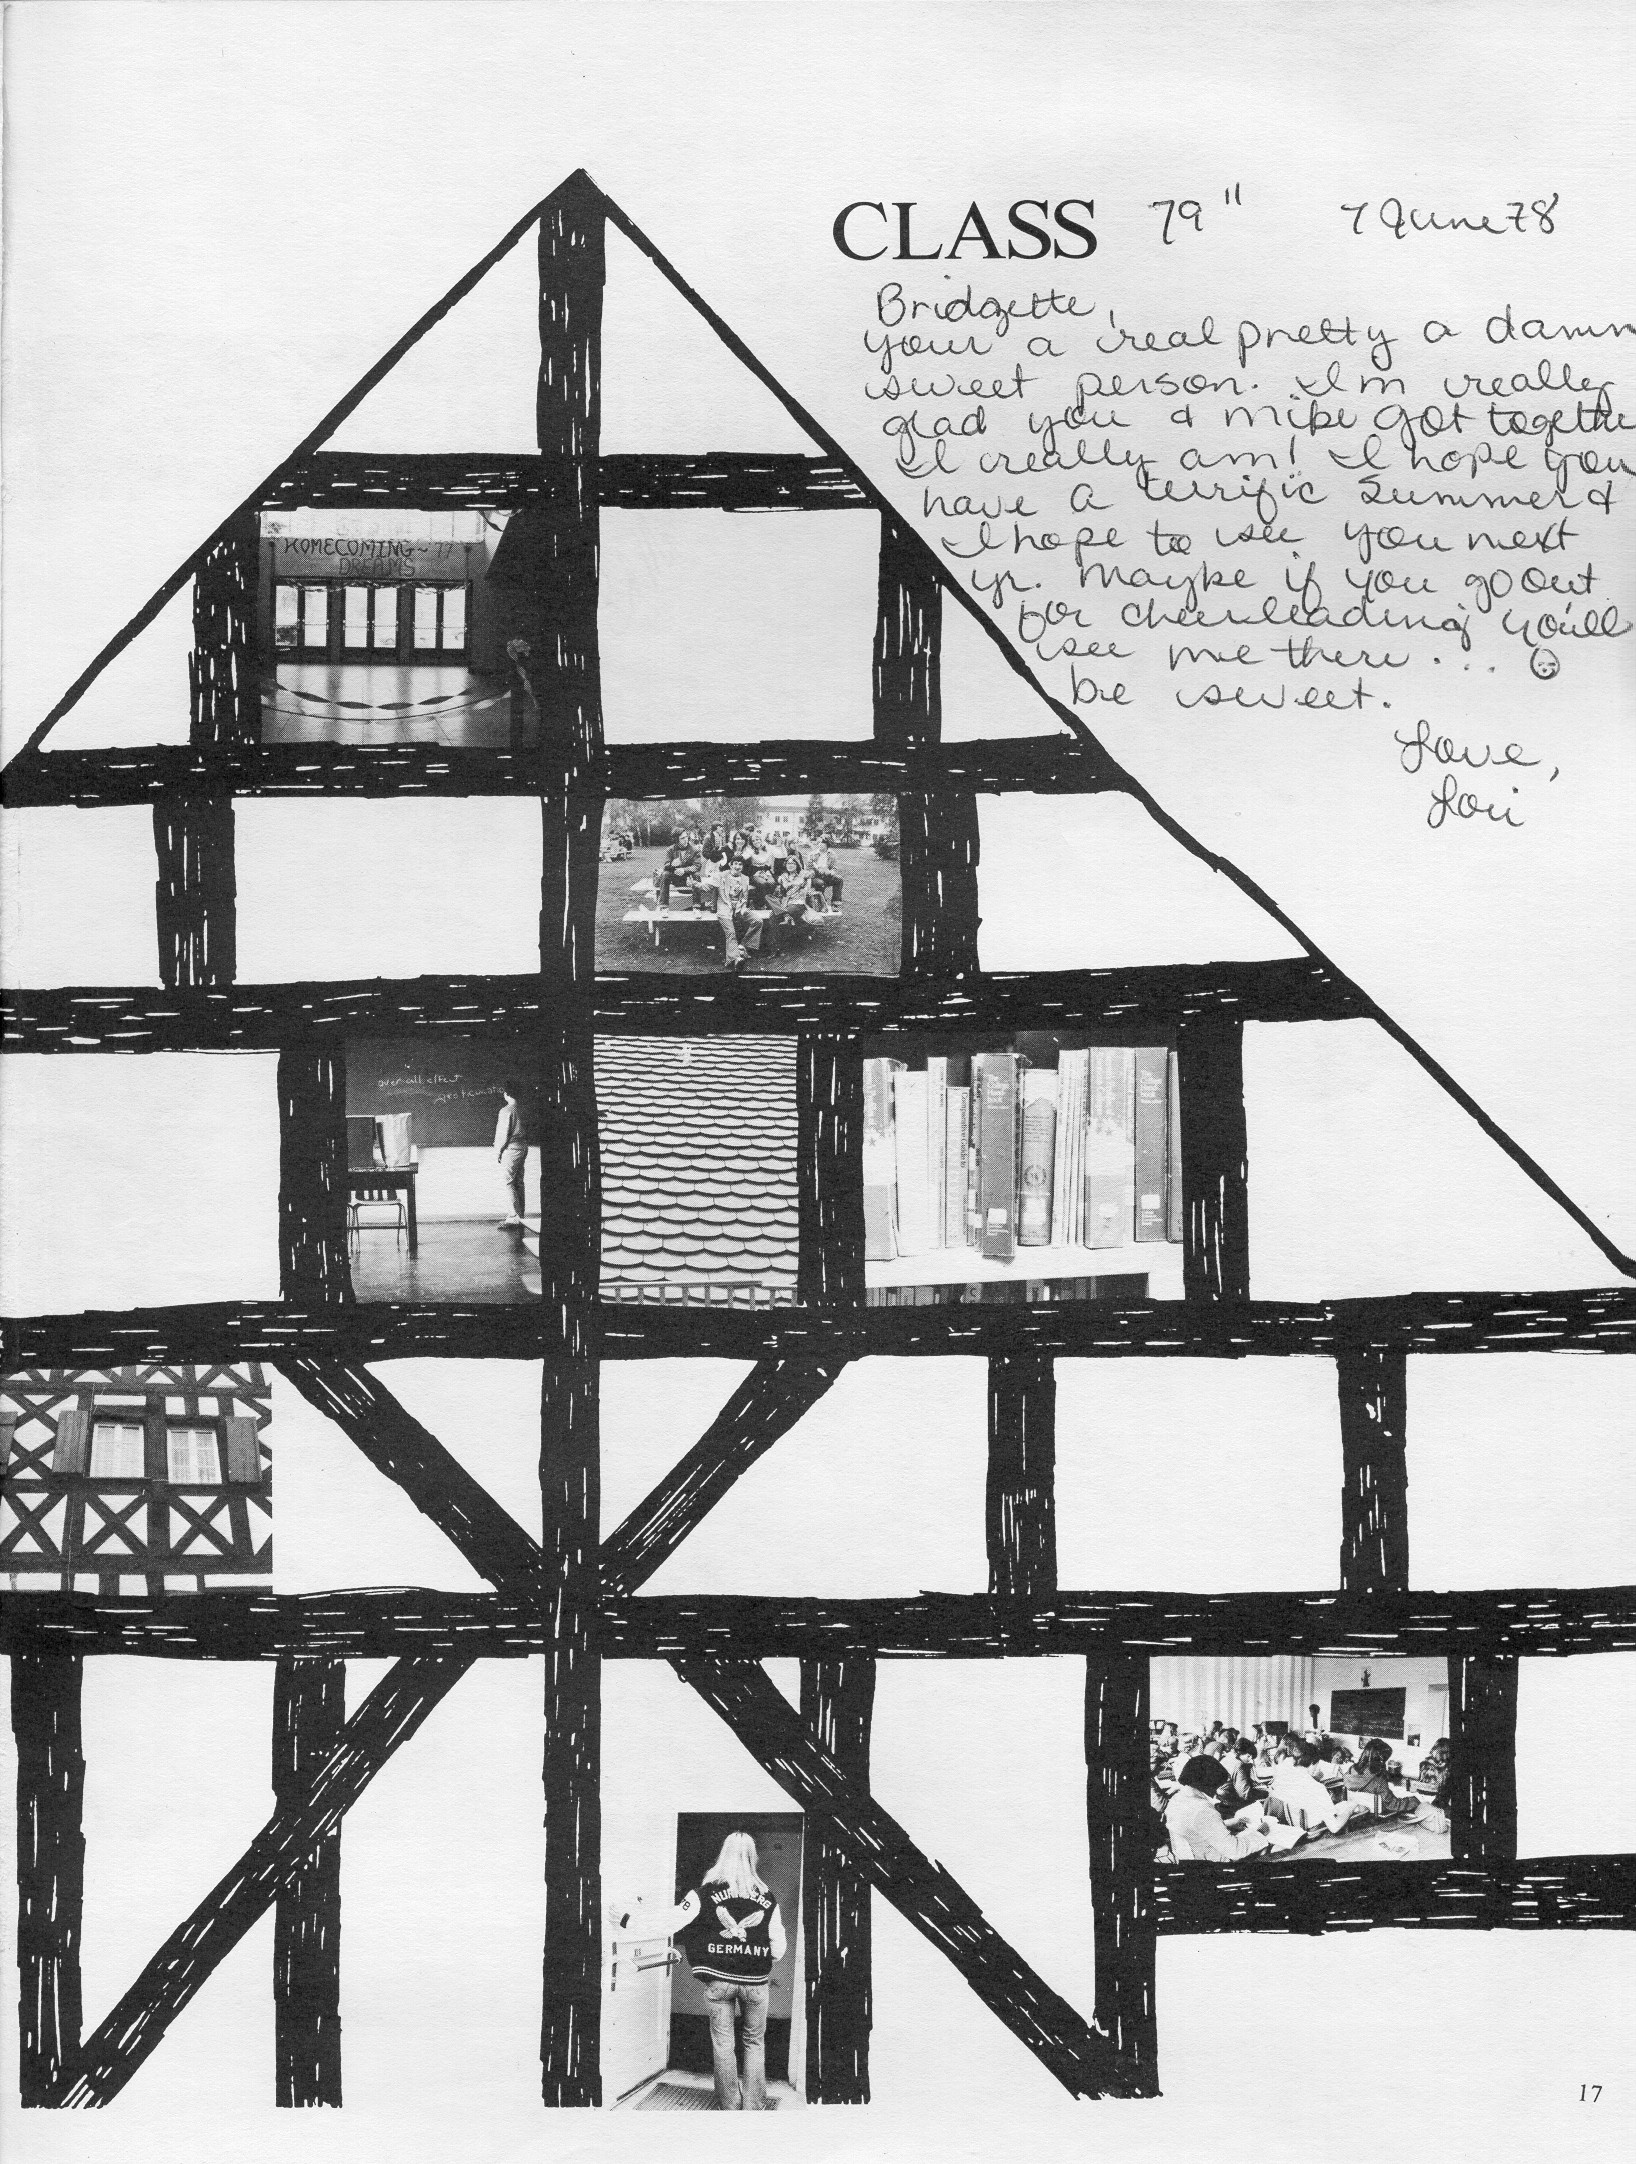 CLASS 79" 7 June 78
Bridgette,
your a real pretty a damn
sweet person. I'm really
glad you & mike got togethe
I really am! I hope you
have a terrific summer &
I hope to see you next
yr. maybe if you go out
for cheerleading you'll
see me there...
be sweet.
Love,
Lori
HOMECOMING ~ 77
DREAMS
over-all effect
NURNBERG
GERMANY
17